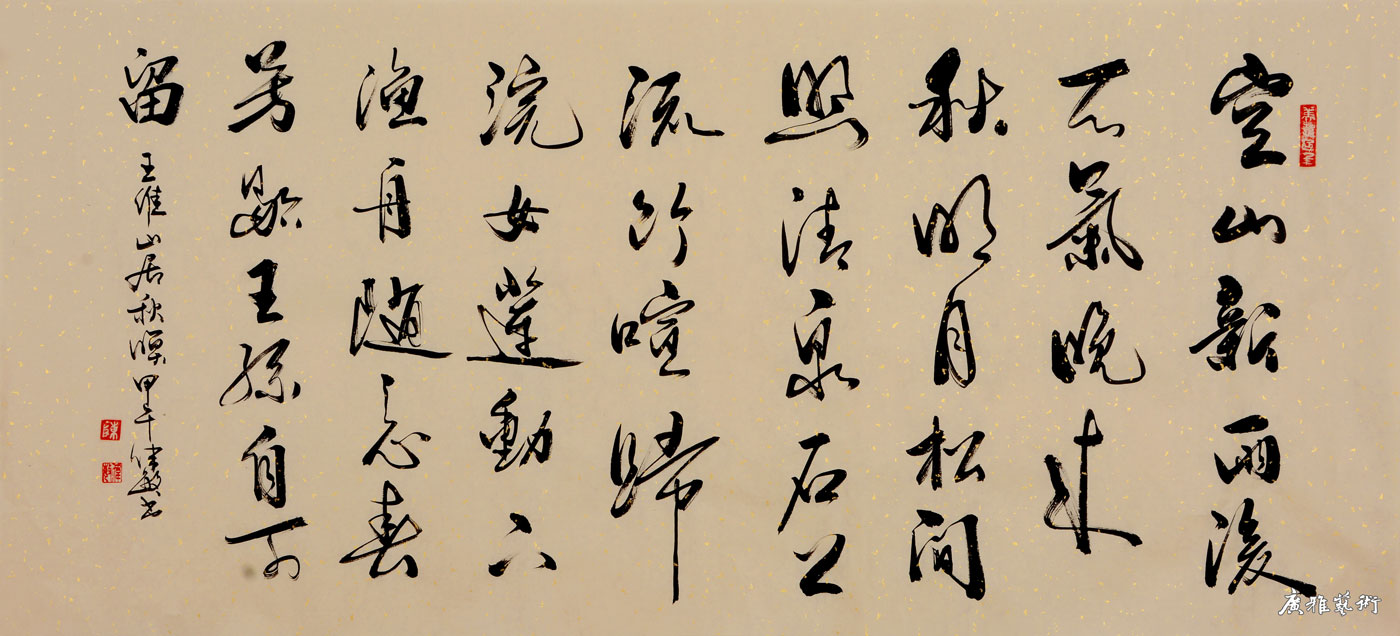 空山新雨後
天氣晚來
秋明月松間
照清泉石上
流竹喧歸
浣女蓮動下
漁舟隨意春
芳歇王孫自可
留
王維山居秋暝甲午書
廣雅藝術